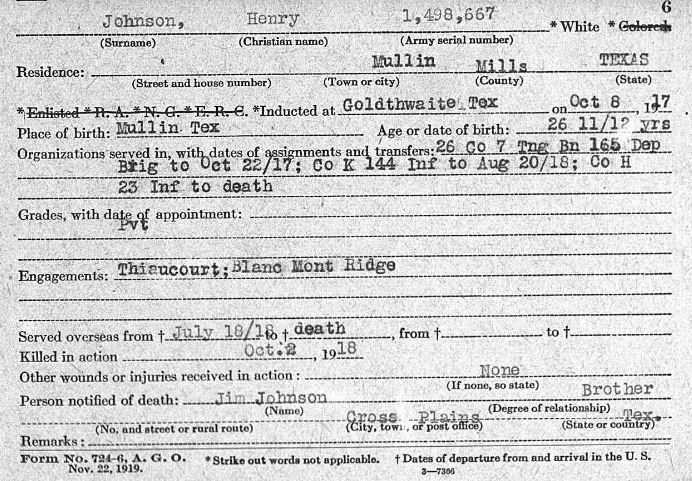 6
Johnson, Henry 1,498,667 * White * Colored
(Surname) (Christian name) (Army serial number)
Residence: Mullin Mills TEXAS
(Street and house number) (Town or city) (County) (State)
*Enlisted *R. A. *N. G. *E. R. C. *Inducted at Goldthwaite Tex on Oct 8, 1917
Place of birth: Mullin Tex Age or date of birth: 26 11/12 yrs
Organizations served in, with dates of assignments and transfers: 26 Co 7 Tng Bn 165 Dep
Brig to Oct 22/17; Co K 144 Inf to Aug 20/18; Co H
23 Inf to death
Grades, with date of appointment:
Pvt
Engagements: Thiaucourt; Blanc Mont Ridge
Served overseas from † July 18/18 to † death, from † to †
Killed in action Oct. 2, 1918
Other wounds or injuries received in action: None
(If none, so state)
Person notified of death: Jim Johnson Brother
(Name) (Degree of relationship)
Cross Plains Tex.
(No. and street or rural route) (City, town, or post office) (State or country)
Remarks:
Form No. 724-6, A. G. O. *Strike out words not applicable. † Dates of departure from and arrival in the U. S.
Nov. 22, 1919. 3—7366